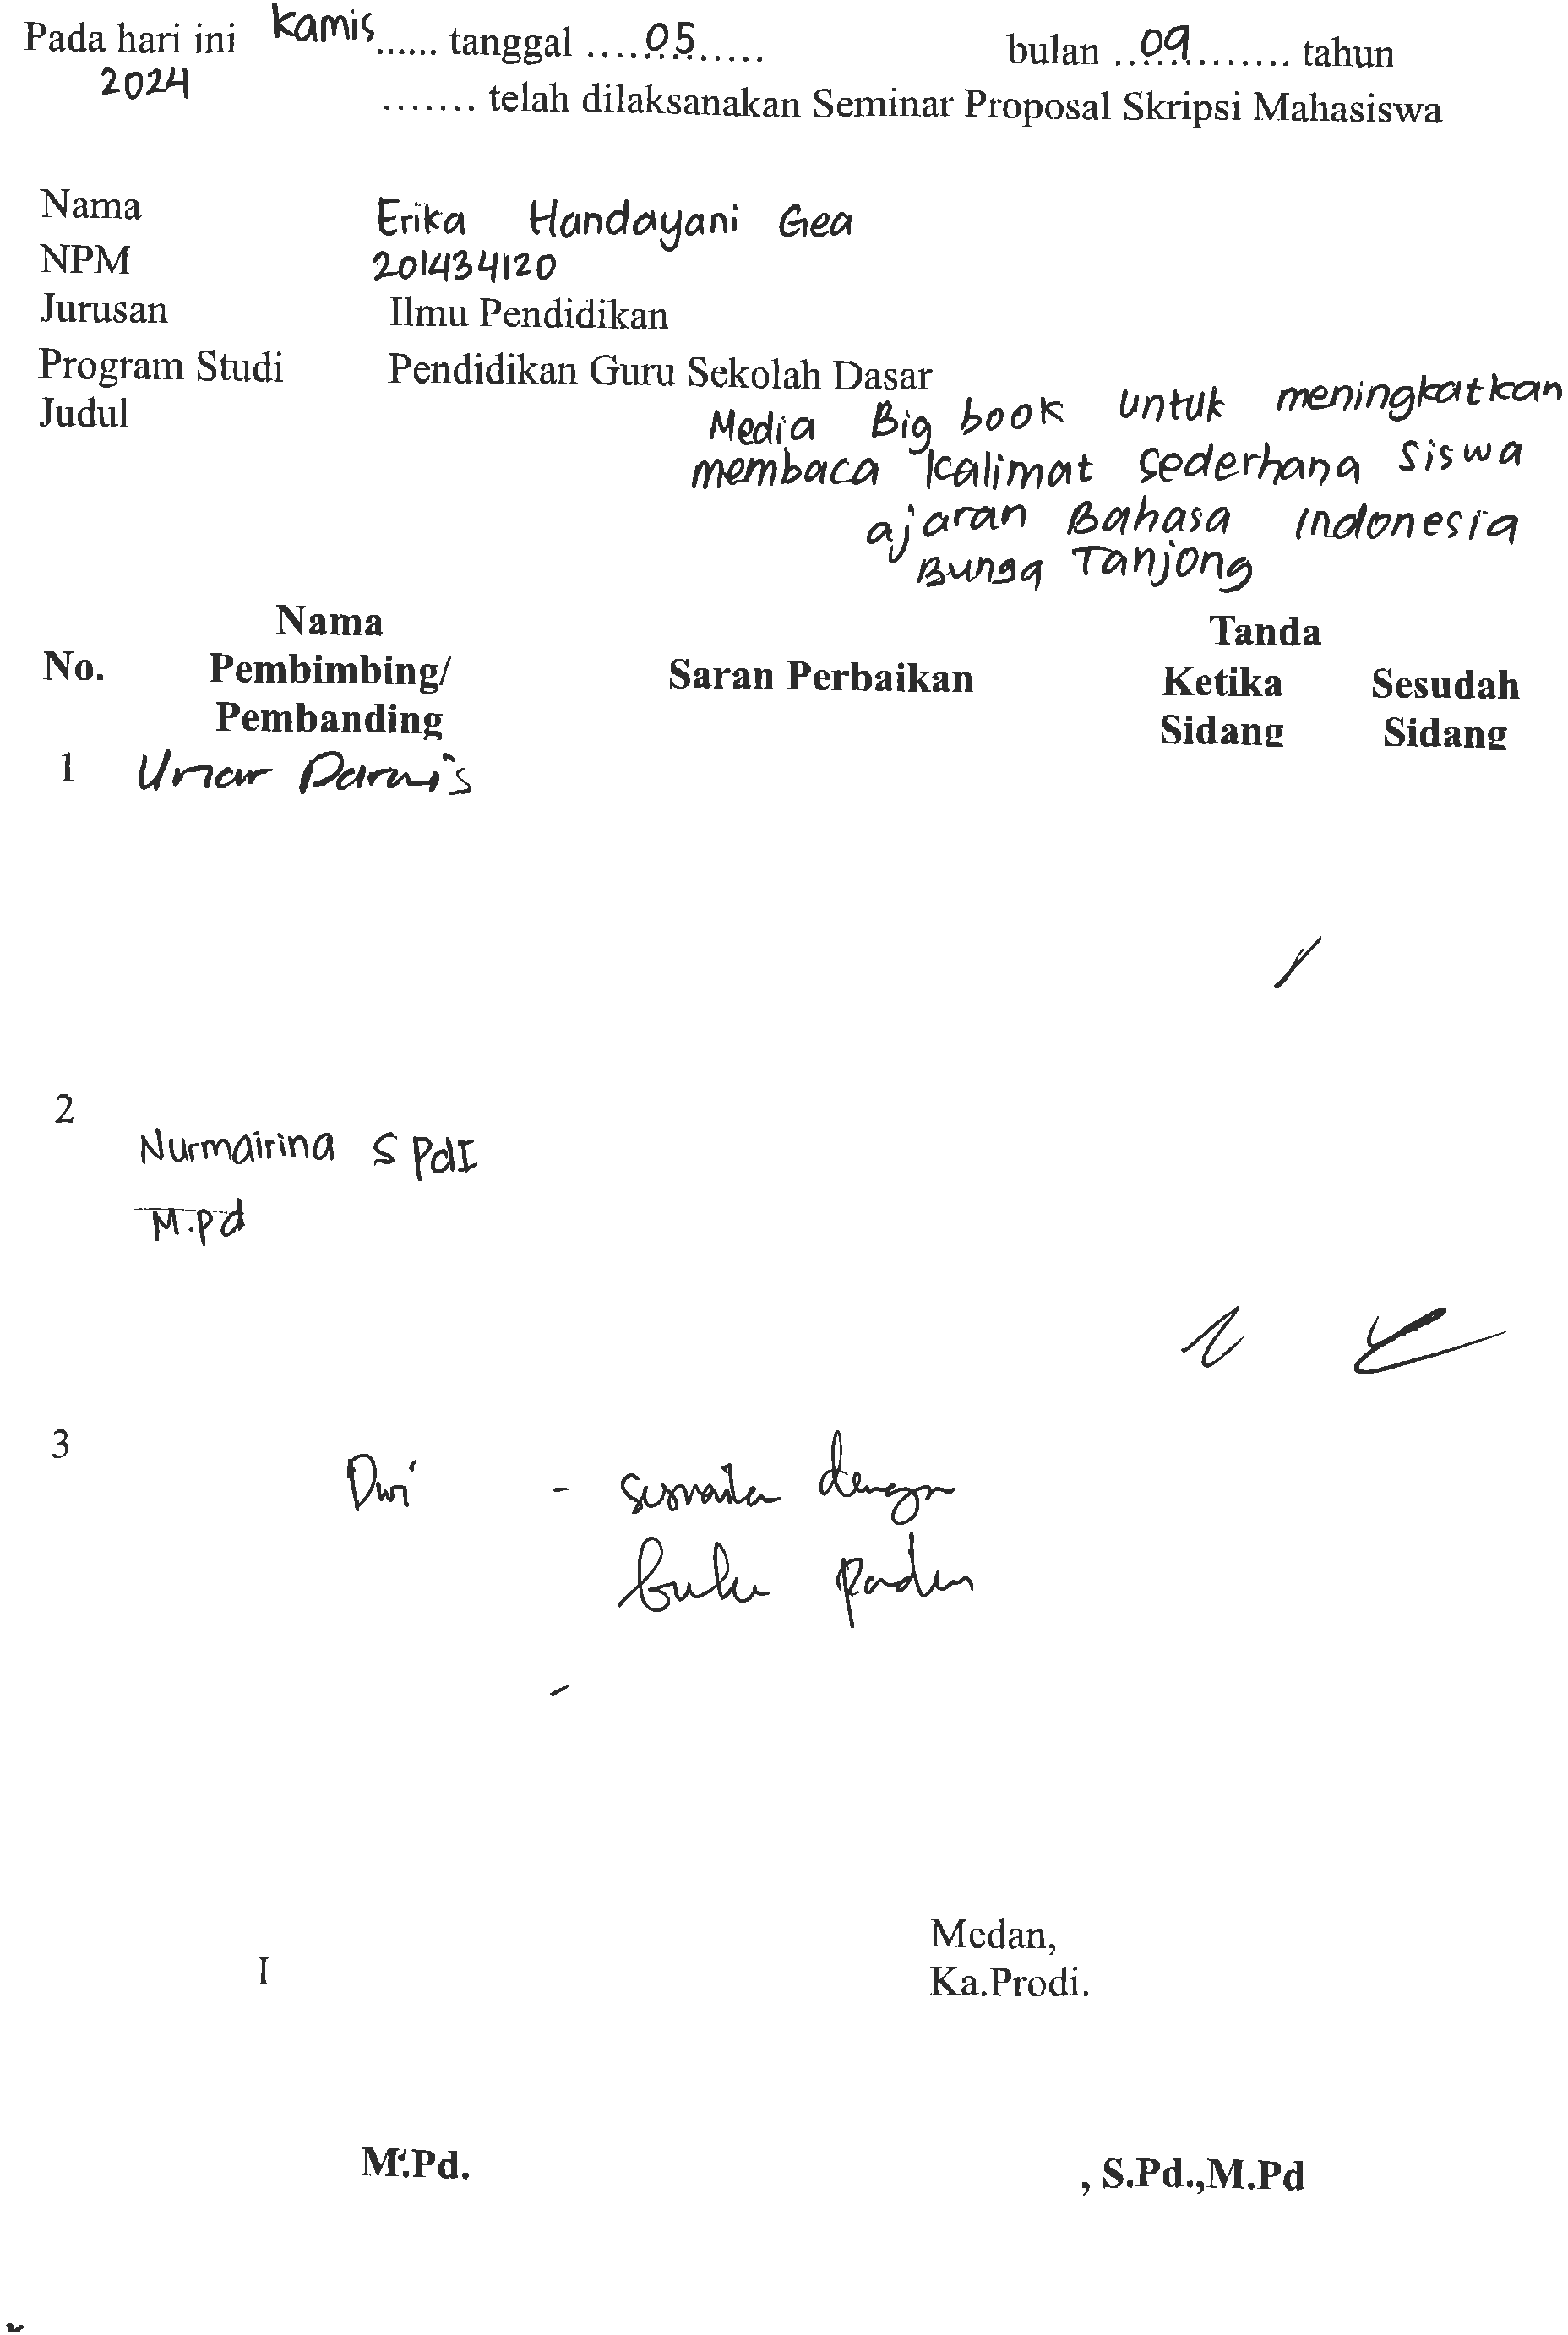 Pada hari ini kamis...... tanggal .....05...... bulan ...09............ tahun
2024 ....... telah dilaksanakan Seminar Proposal Skripsi Mahasiswa
Nama Erika Handayani Gea
NPM 201434120
Jurusan Ilmu Pendidikan
Program Studi Pendidikan Guru Sekolah Dasar
Judul Media Big book untuk meningkatkan
membaca kalimat sederhana siswa
ajaran Bahasa Indonesia
Bunga Tanjong
Nama Tanda
No. Pembimbing/ Saran Perbaikan Ketika Sesudah
Pembanding Sidang Sidang
1 Umar Darwis
2
Nurmairina S PdI
M.Pd
3 Dwi - sesuaikan dengan
buku panduan
-
Medan,
I Ka.Prodi.
M.Pd. , S.Pd.,M.Pd